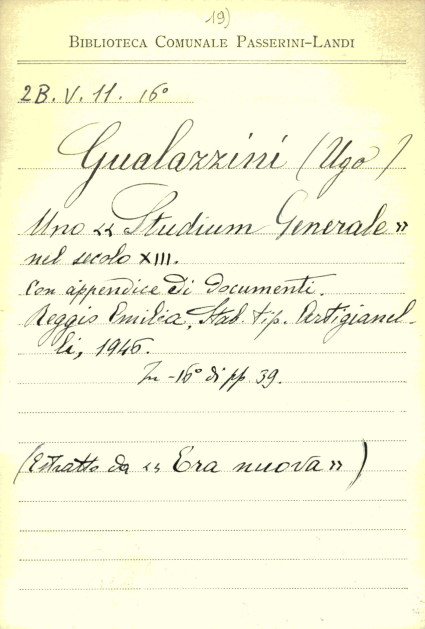 19)
BIBLIOTECA COMUNALE PASSERINI-LANDI
2B. V. 11. 16°
Gualazzini (Ugo)
Uno « Studium Generale »
nel secolo XIII.
Con appendice di documenti.
Reggio Emilia, Stab. tip. Artigianel-
li, 1946.
In-16° di pp 39.
(Estratto da « Era nuova » )